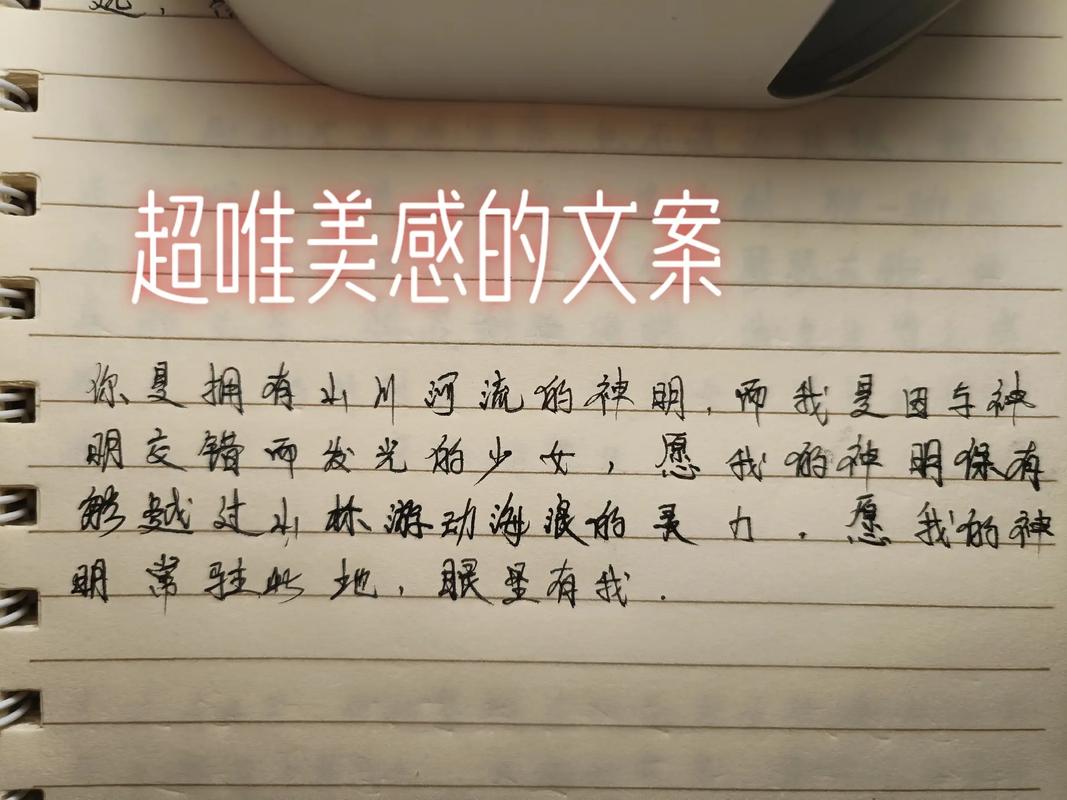 超唯美感的文案
你是拥有山川河流的神明,而我是因与神
明交错而发光的少女,愿我的神明保有
能越过山林游动海浪的灵力.愿我的神
明常驻此地,眼里有我.